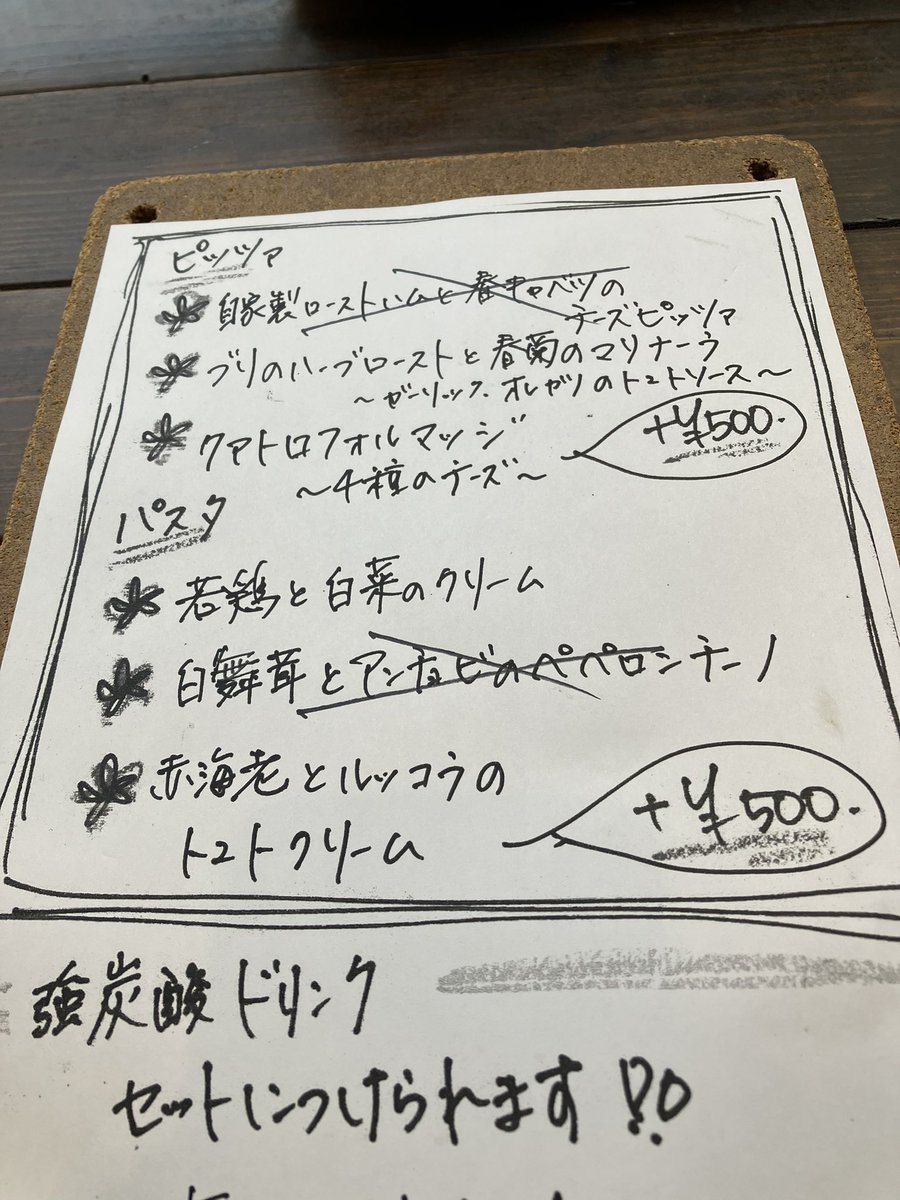 ピッツァ
自家製ローストハムと春キャベツの
チーズピッツァ
ブリのハーブローストと春菊のマリナーラ
〜ガーリック、オレガノのトマトソース〜
クァトロフォルマッジ
+¥500.
〜4種のチーズ〜
パスタ
若鶏と白菜のクリーム
白舞茸とアンチョビのペペロンチーノ
赤海老とルッコラの
トマトクリーム
+¥500.
強炭酸ドリンク
セットにつけられます!!